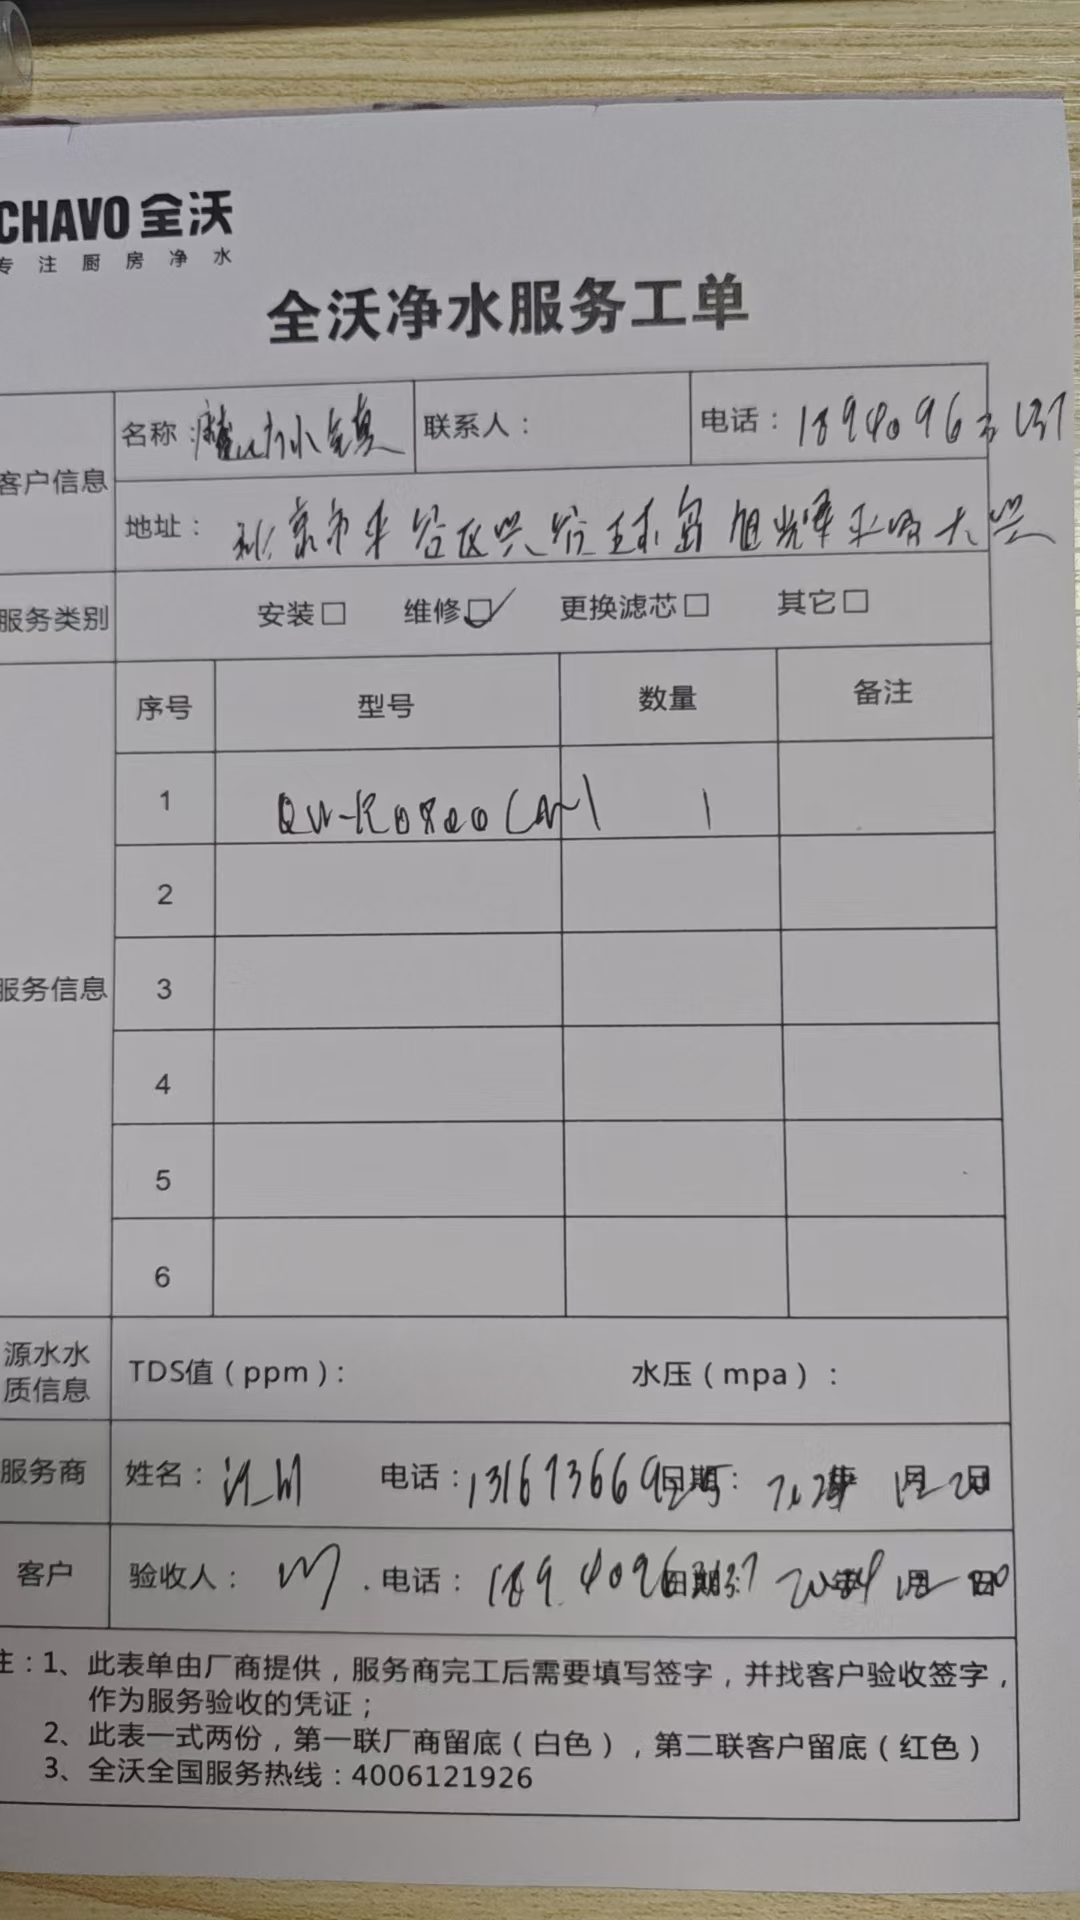 CHAVO 全沃
专注厨房净水
全沃净水服务工单
客户信息
名称: 小镇
联系人:
电话: 18940963137
地址: 北京市平谷区兴谷
服务类别
安装□ 维修☑ 更换滤芯□ 其它□
服务信息
序号 型号 数量 备注
1 QW-RO800 1
2
3
4
5
6
源水水质信息
TDS值(ppm): 水压(mpa):
服务商
姓名: 电话: 日期: 年 月 20日
客户
验收人: 电话:18940963137 日期: 2024年 月 20日
注:1、此表单由厂商提供,服务商完工后需要填写签字,并找客户验收签字,
作为服务验收的凭证;
2、此表一式两份,第一联厂商留底(白色),第二联客户留底(红色)
3、全沃全国服务热线:4006121926